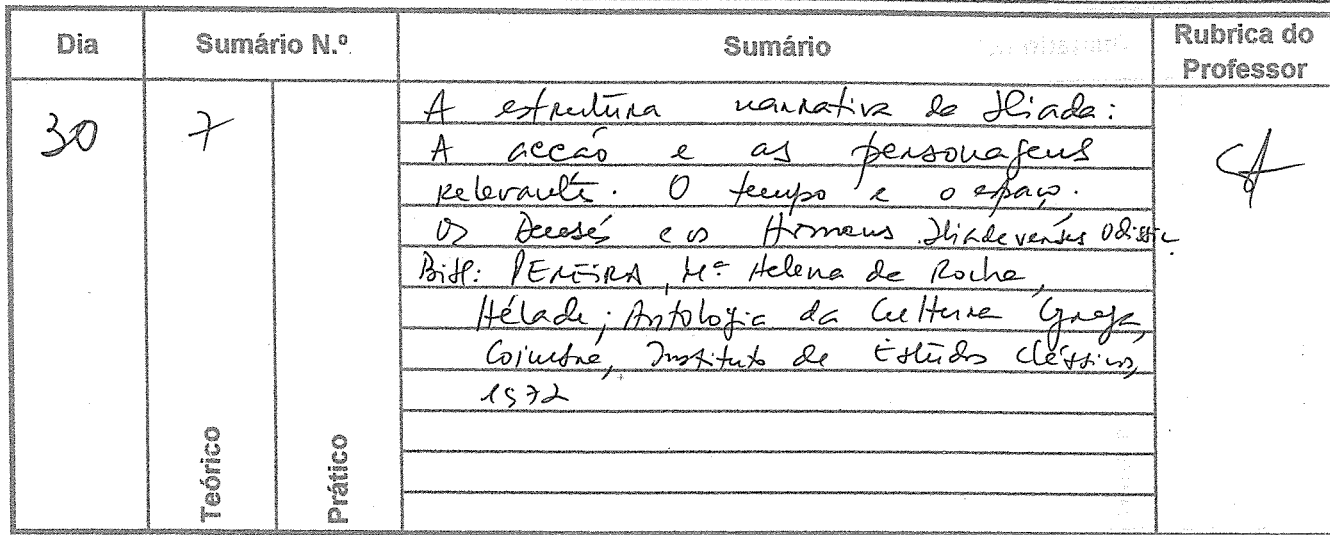 Dia Sumário N.º Sumário Rubrica do Professor
30 7
A estrutura narrativa da Ilíada:
A acção e as personagens
relevantes. O tempo e o espaço.
Os Deuses e os Homens. Ilíade versus Odisseia.
Bibl: PEREIRA, Mª Helena da Rocha,
Hélade; Antologia da Cultura Grega,
Coimbra, Instituto de Estudos Clássicos,
1972
Teórico Prático